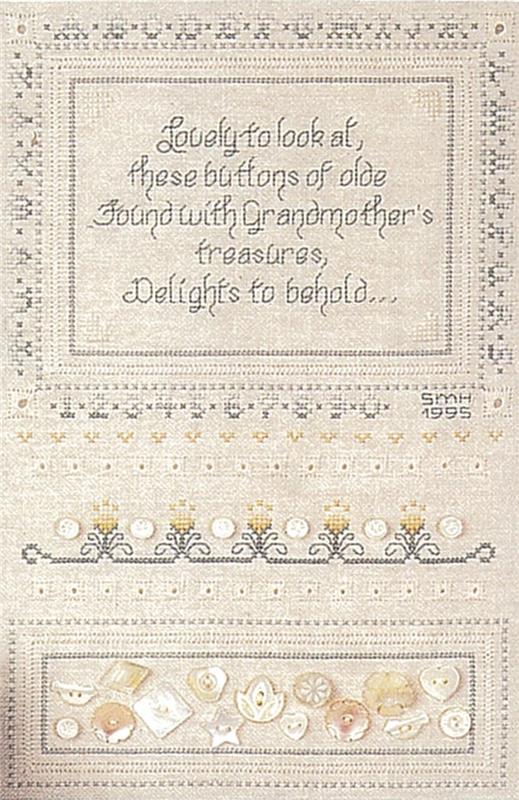 Lovely to look at,
these buttons of olde
Found with Grandmother's
treasures,
Delights to behold...
1 2 3 4 5 6 7 8 9 0
SMH
1995